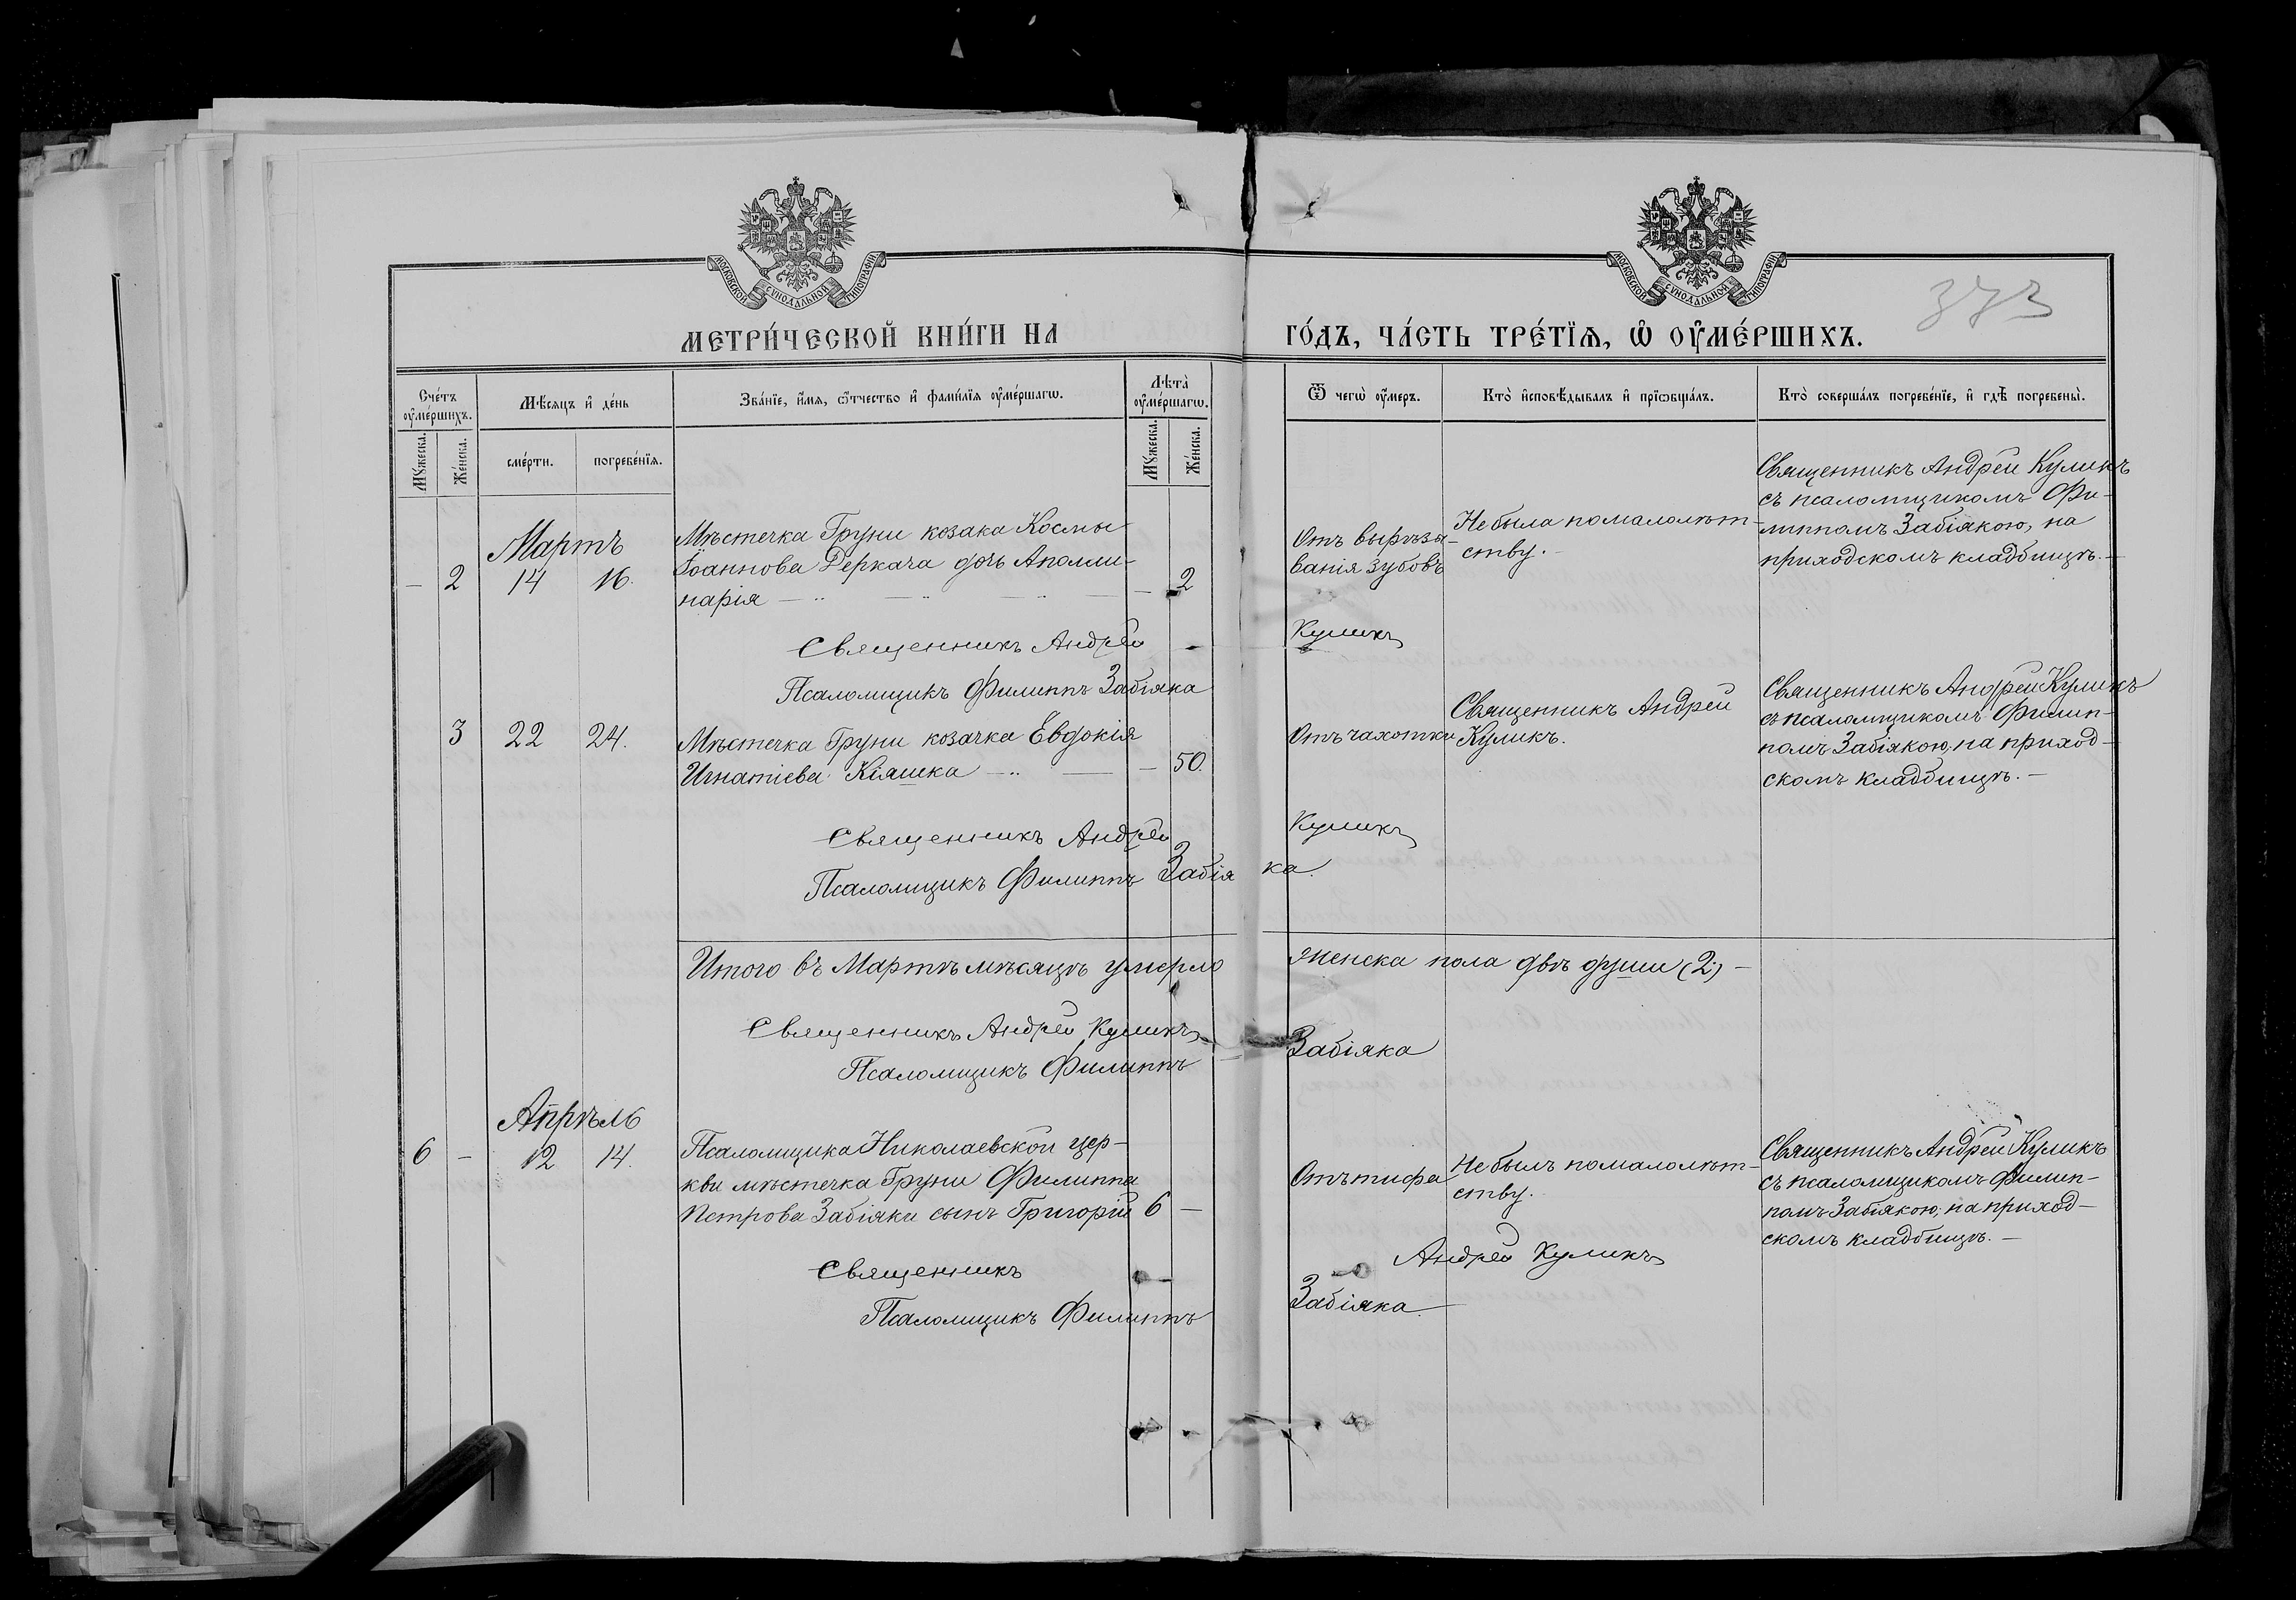 МОСКОВСКОЙ СѴНОДАЛЬНОЙ ТИПОГРАФІИ
МОСКОВСКОЙ СѴНОДАЛЬНОЙ ТИПОГРАФІИ
373
МЕТРИ́ЧЕСКОЙ КНИ́ГИ НА ГО́ДЪ, ЧА́СТЬ ТРЕ́ТЇѦ, Ѡ҆ ОУ҆МЕ́РШИХЪ.
Сче́тъ оу҆ме́ршихъ.
Мꙋ́жеска.
Же́нска.
Мѣ́сяцъ и҆ де́нь
сме́рти.
погребе́нїѧ.
Зва́нїе, и҆́мѧ, ѻ҆́тчество и҆ фами́лїѧ оу҆ме́ршагѡ.
Лѣ́та оу҆ме́ршагѡ.
Мꙋ́жеска.
Же́нска.
Ѿ чегѡ̀ оу҆́меръ.
Кто̀ и҆сповѣ́дывалъ и҆ прїѡбща́лъ.
Кто̀ соверша́лъ погребе́нїе, и҆ гдѣ̀ погребены̀.
Мартъ
— 2 14 16.
Мѣстечка Груни козака Космы
Іоаннова Деркача дочь Аполли-
нарія — — — — — 2
Отъ вырѣзы-
ванія зубовъ
Не была по малолѣт-
ству.
Священникъ Андрей Куликъ
съ псаломщикомъ Фи-
липпомъ Забіякою, на
приходскомъ кладбищѣ. —
Священникъ Андрей Куликъ
Псаломщикъ Филиппъ Забіяка
3 22 24.
Мѣстечка Груни козачка Евдокія
Игнатіева Кіяшка — — — 50.
Отъ чахотки
Священникъ Андрей
Куликъ.
Священникъ Андрей Куликъ
съ псаломщикомъ Филип-
помъ Забіякою, на приход-
скомъ кладбищѣ. —
Священникъ Андрей Куликъ
Псаломщикъ Филиппъ Забіяка.
Итого въ Мартѣ мѣсяцѣ умерло женска пола двѣ души (2) —
Священникъ Андрей Куликъ
Псаломщикъ Филиппъ Забіяка
Апрѣль
6 — 12 14.
Псаломщика Николаевской цер-
кви мѣстечка Груни Филиппа
Петрова Забіяки сынъ Григорій 6 —
Отъ тифа
Не былъ по малолѣт-
ству.
Священникъ Андрей Куликъ
съ псаломщикомъ Филип-
помъ Забіякою, на приход-
скомъ кладбищѣ. —
Священникъ Андрей Куликъ
Псаломщикъ Филиппъ Забіяка.